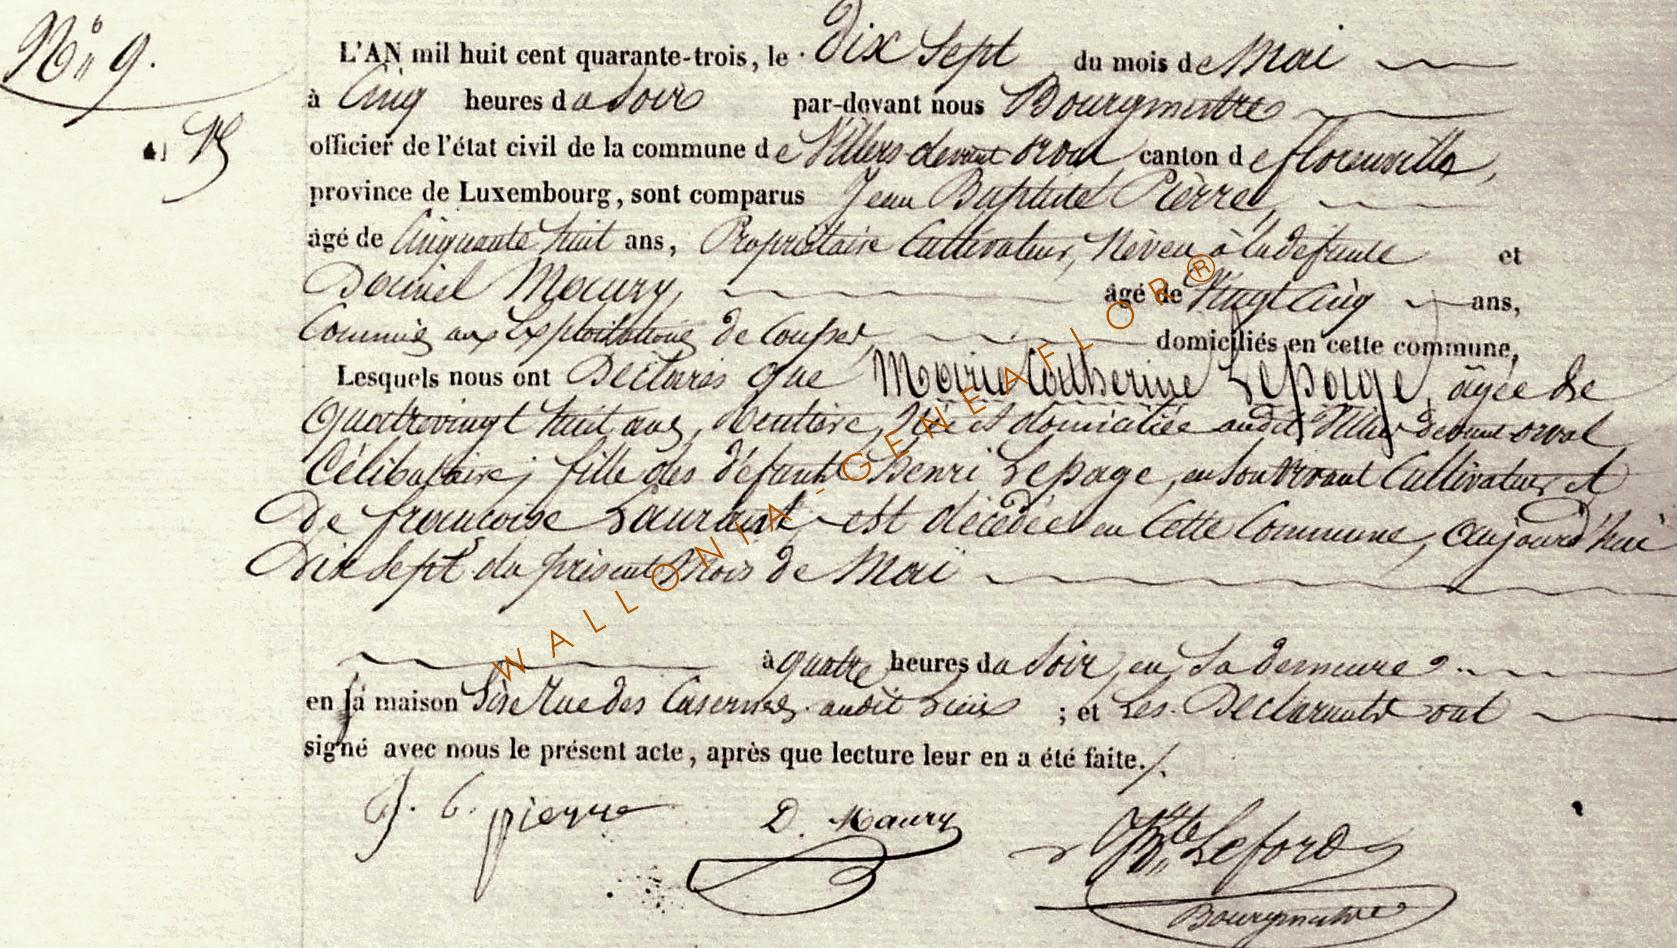 N° 9.
L'AN mil huit cent quarante-trois, le dix sept du mois de Mai
à Cinq heures du Soir par-devant nous Bourgmestre
officier de l'état civil de la commune de Villers devant orval canton de florenville,
province de Luxembourg, sont comparus Jean Baptiste Pierre,
âgé de Cinquante huit ans, Propriétaire Cultivateur, Néveu à la défunte et
Daniel Maury, âgé de Vingt Cinq ans,
Commis aux Exploitations de Coupes, domiciliés en cette commune,
Lesquels nous ont Déclarés que Marie Catherine Lepage, âgée de
Quatrevingt huit ans, Rentière, Née et domiciliée audit Viller devant orval
Célibataire; fille des défunts Henri Lepage, en son vivant Cultivateur et
De françoise Laurant, est décédée en Cette Commune, aujourd'hui
Dix Sept du présent Mois de Mai
à quatre heures du Soir, en Sa demeure
en sa maison Sise Rue des Casernes audit Lieu ; et Les Déclarants ont
signé avec nous le présent acte, après que lecture leur en a été faite./.
J. B. pierre D. Maury Bte Leford
Bourgmestre
WALLONIA-GENEAFLOR®